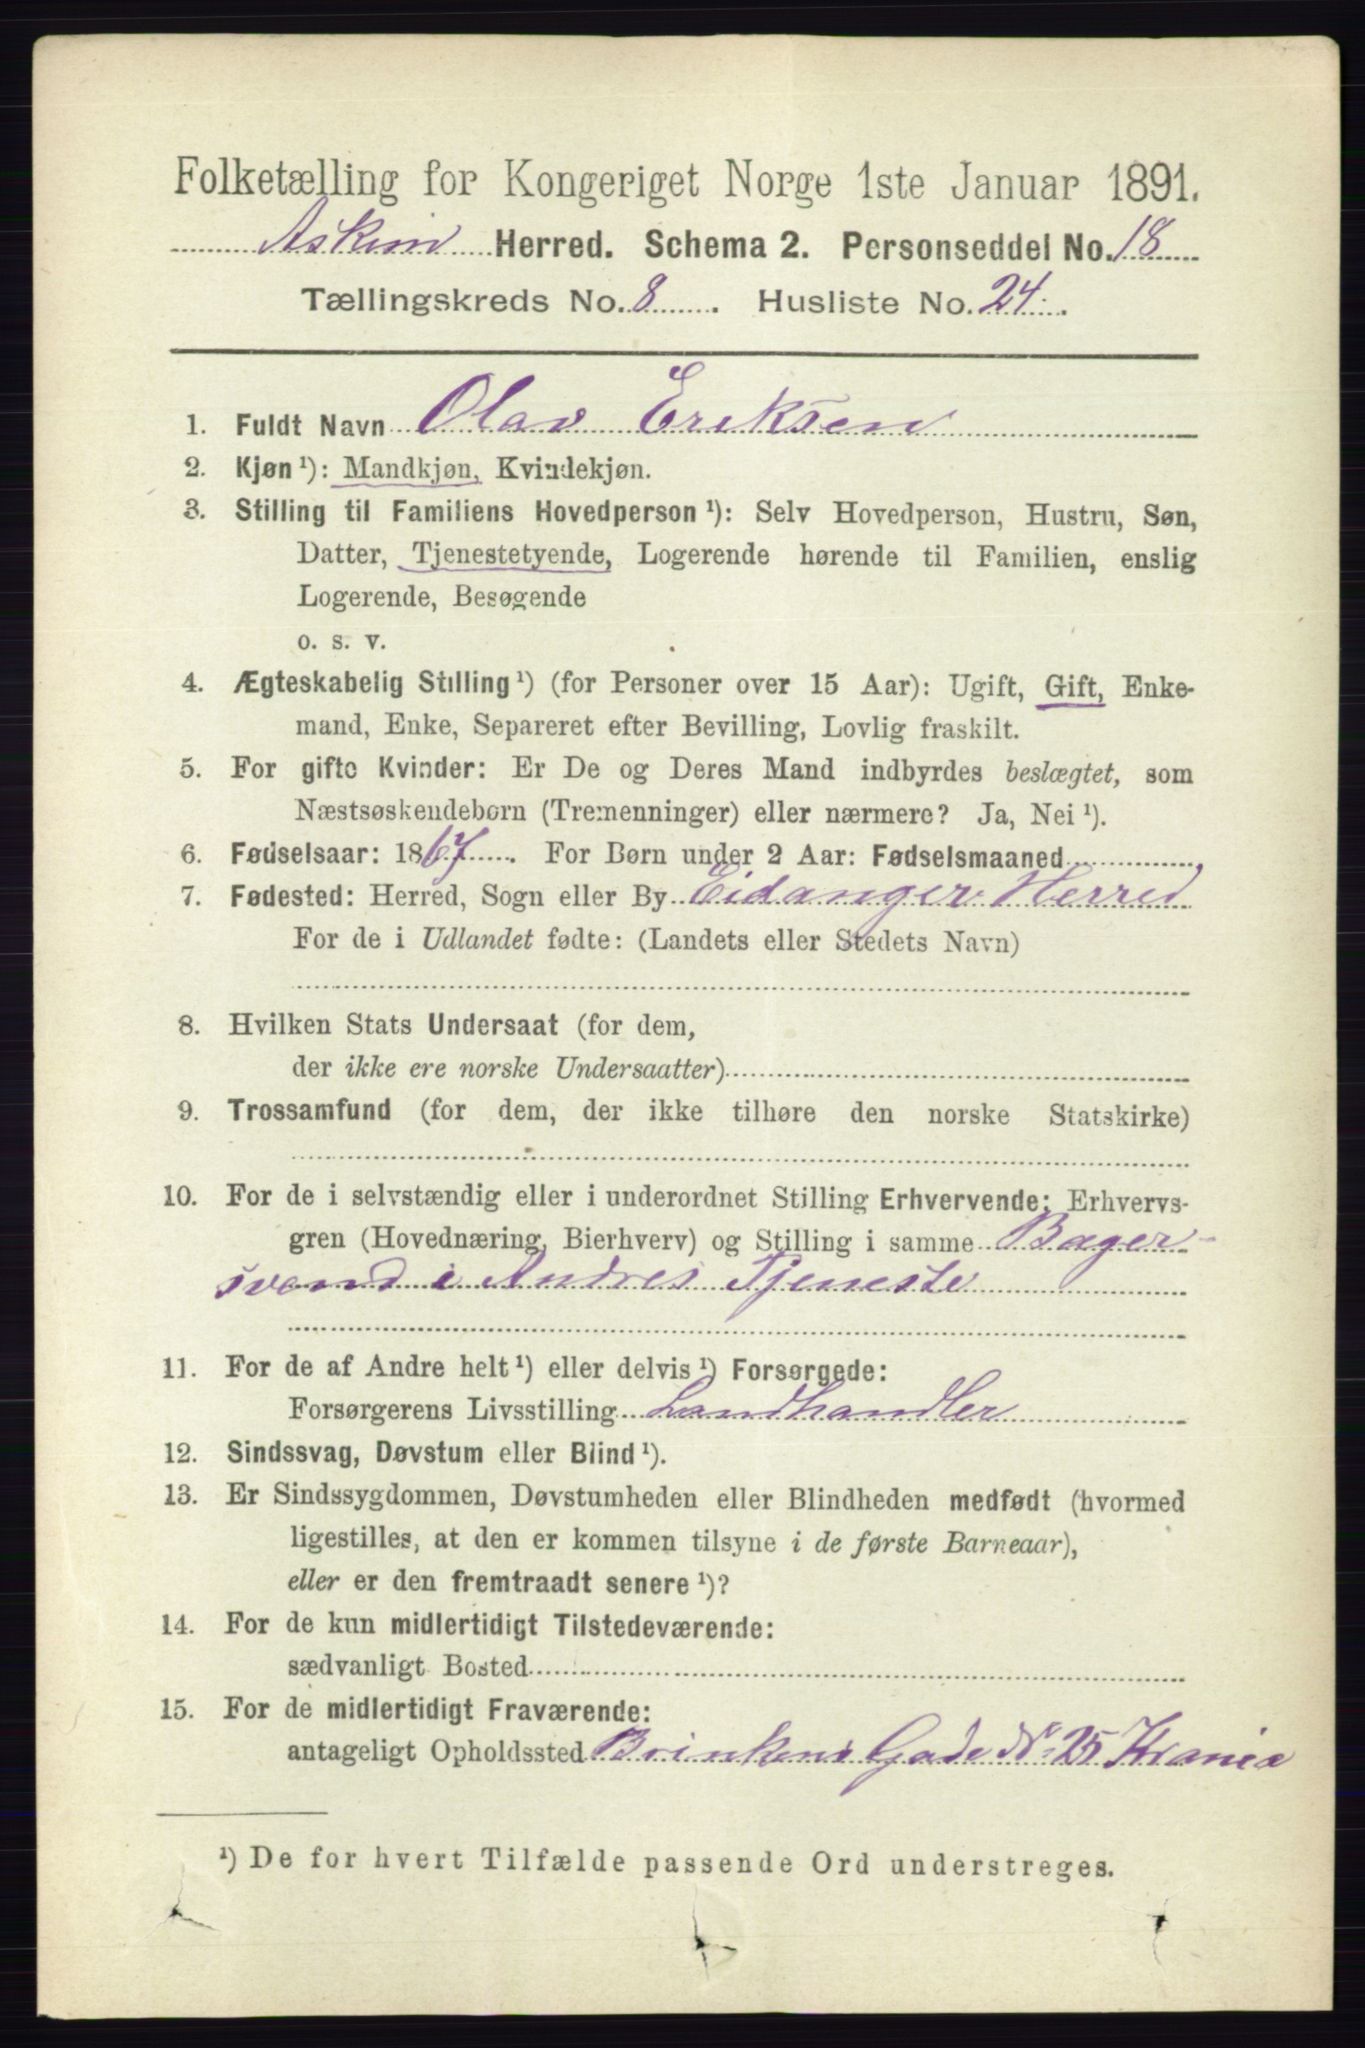 Folketælling for Kongeriget Norge 1ste Januar 1891.
Askim Herred. Schema 2. Personseddel No. 18
Tællingskreds No. 8. Husliste No. 24.
1. Fuldt Navn Olav Eriksen
2. Kjøn ¹): Mandkjøn, Kvindekjøn.
3. Stilling til Familiens Hovedperson ¹): Selv Hovedperson, Hustru, Søn,
Datter, Tjenestetyende, Logerende hørende til Familien, enslig
Logerende, Besøgende
o. s. v.
4. Ægteskabelig Stilling ¹) (for Personer over 15 Aar): Ugift, Gift, Enke-
mand, Enke, Separeret efter Bevilling, Lovlig fraskilt.
5. For gifte Kvinder: Er De og Deres Mand indbyrdes beslægtet, som
Næstsøskendebørn (Tremenninger) eller nærmere? Ja, Nei ¹).
6. Fødselsaar: 1867. For Børn under 2 Aar: Fødselsmaaned
7. Fødested: Herred, Sogn eller By Eidanger Herred
For de i Udlandet fødte: (Landets eller Stedets Navn)
8. Hvilken Stats Undersaat (for dem,
der ikke ere norske Undersaatter)
9. Trossamfund (for dem, der ikke tilhøre den norske Statskirke)
10. For de i selvstændig eller i underordnet Stilling Erhvervende: Erhvervs-
gren (Hovednæring, Bierhverv) og Stilling i samme Bager-
svend i Andres Tjeneste
11. For de af Andre helt ¹) eller delvis ¹) Forsørgede:
Forsørgerens Livsstilling Landhandler
12. Sindssvag, Døvstum eller Blind ¹).
13. Er Sindssygdommen, Døvstumheden eller Blindheden medfødt (hvormed
ligestilles, at den er kommen tilsyne i de første Barneaar),
eller er den fremtraadt senere ¹)?
14. For de kun midlertidigt Tilstedeværende:
sædvanligt Bosted
15. For de midlertidigt Fraværende:
antageligt Opholdssted Brinkens Gade No 25 Krania
¹) De for hvert Tilfælde passende Ord understreges.